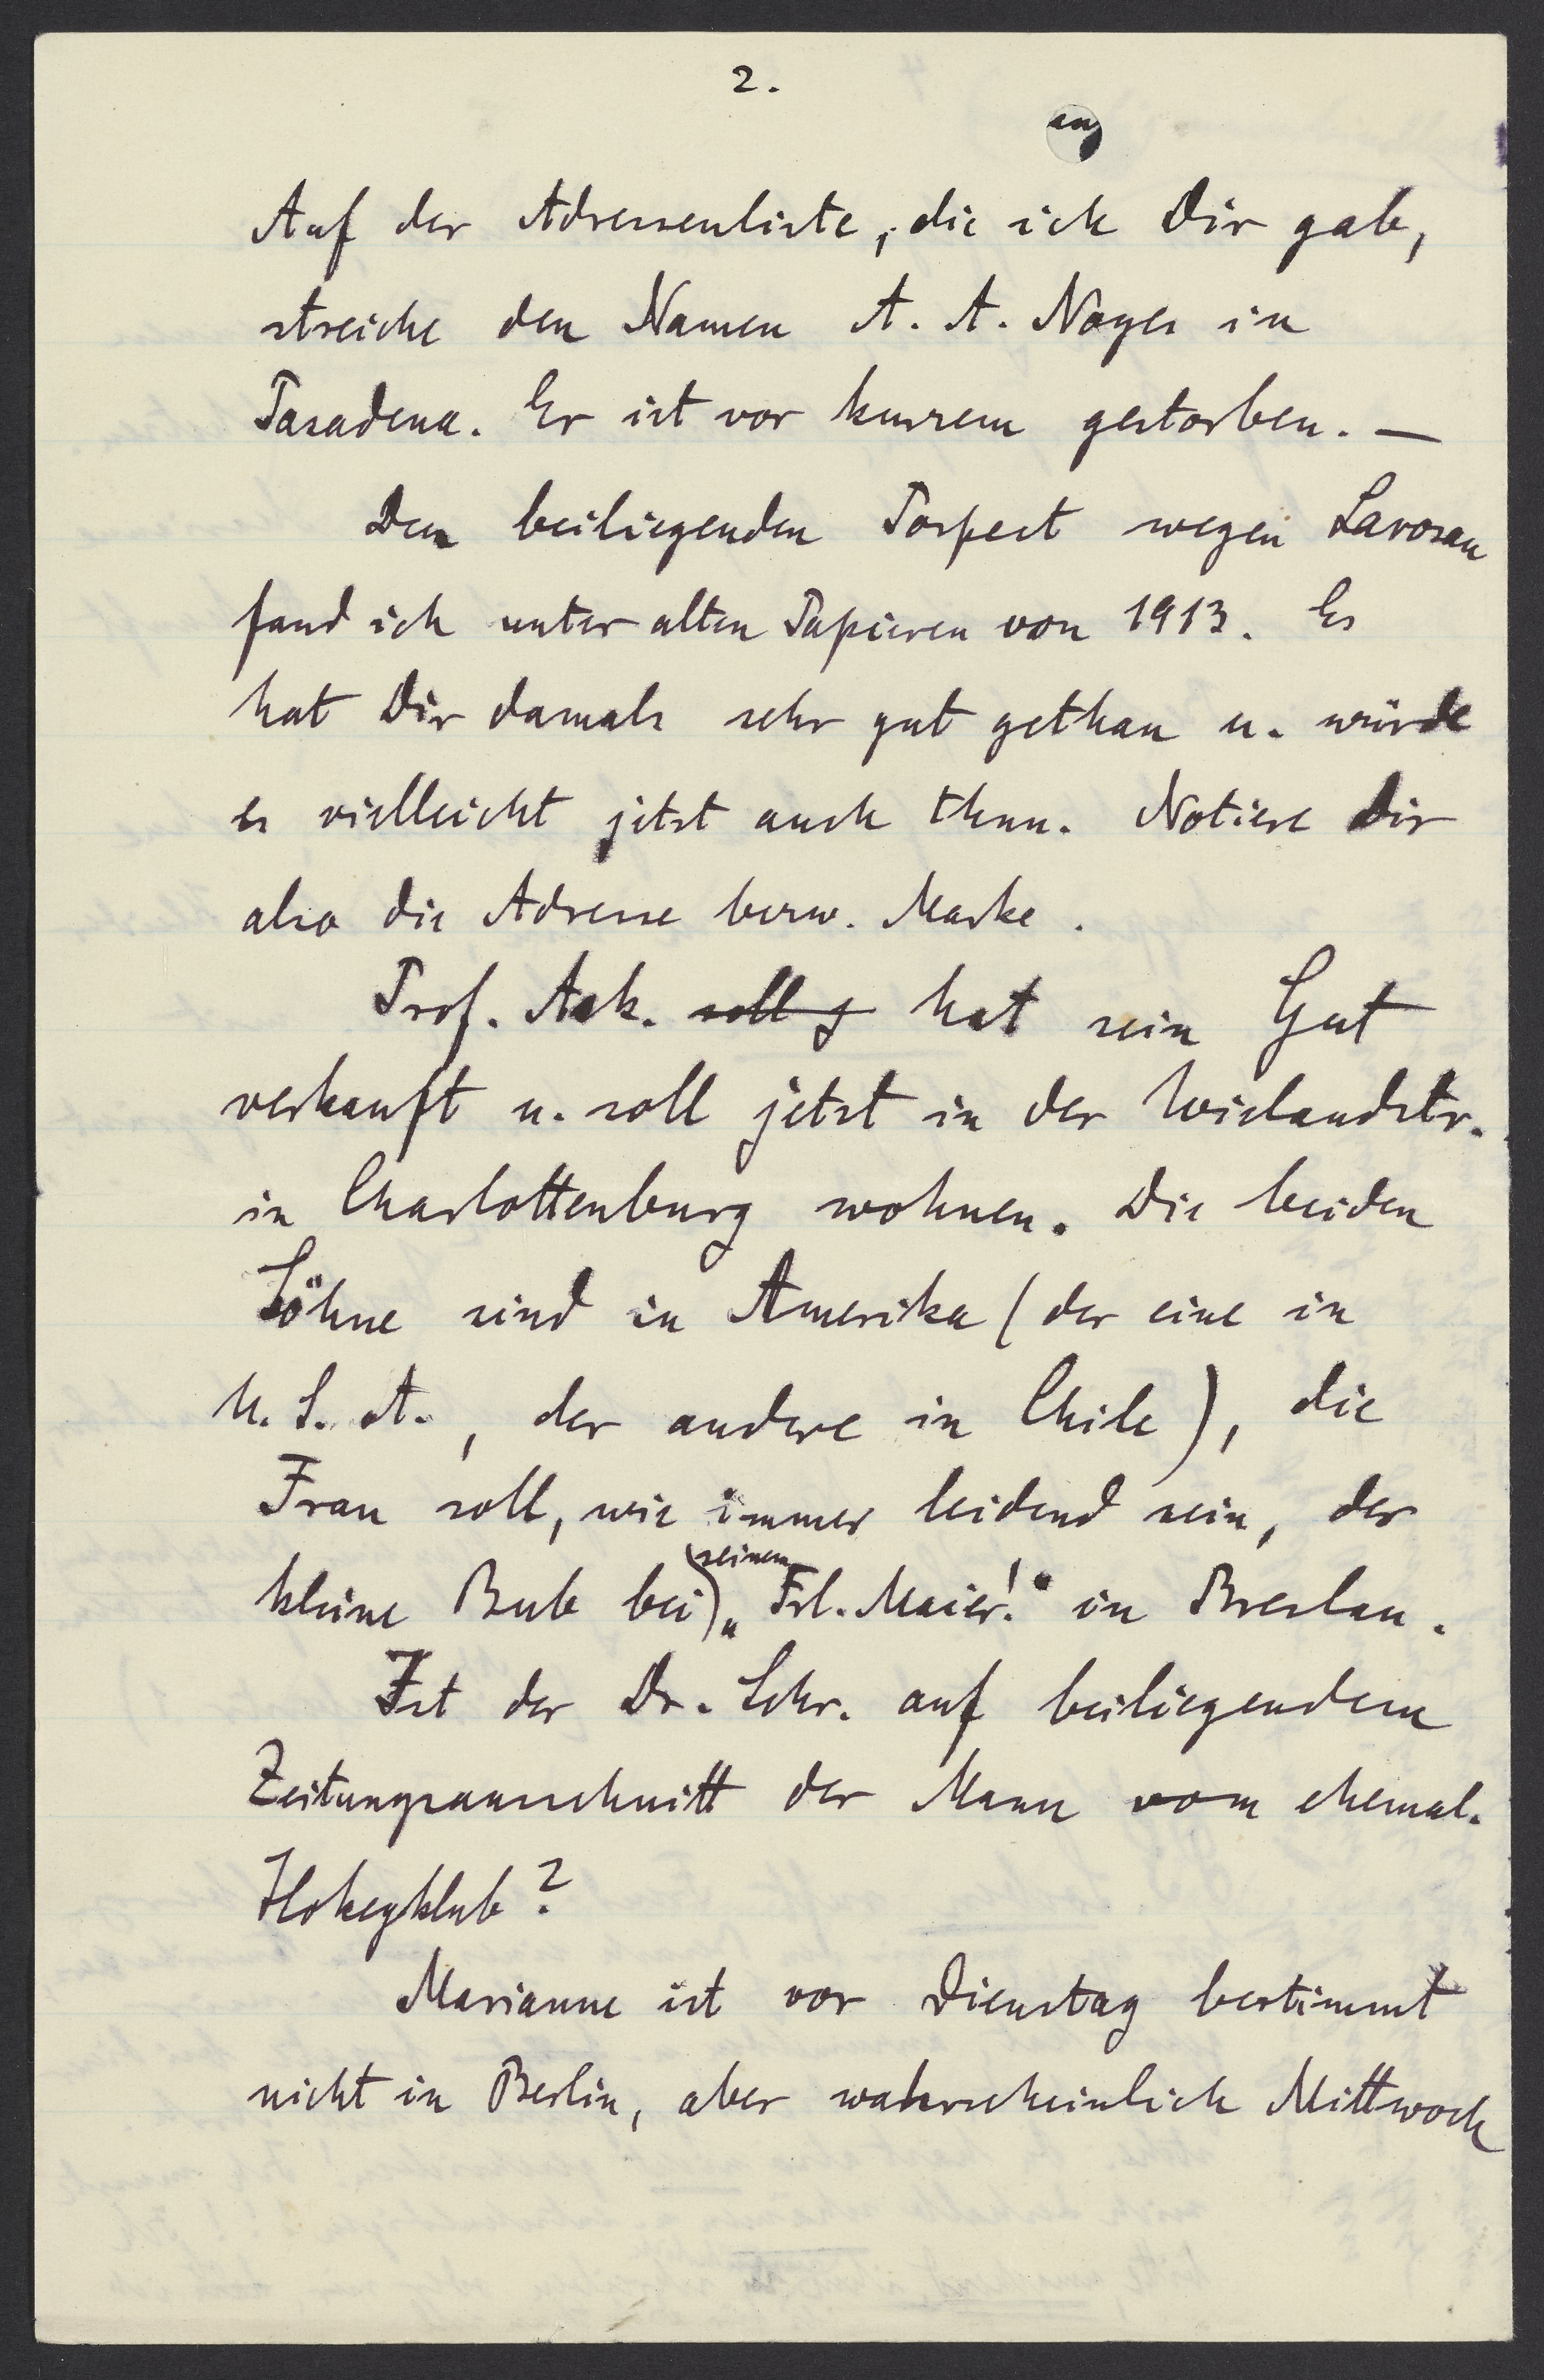 2.
Auf der Adressenliste, die ich Dir gab,
streiche den Namen A. A. Noyes in
Pasadena. Er ist vor kurzem gestorben. —
Den beiliegenden Pospect wegen Lavosan
fand ich unter alten Papieren von 1913. Es
hat Dir damals sehr gut gethan u. würde
es vielleicht jetzt auch thun. Notiere Dir
also die Adresse bezw. Marke.
Prof. Ask. soll g hat sein Gut
verkauft u. soll jetzt in der Wielandstr.
in Charlottenburg wohnen. Die beiden
Söhne sind in Amerika (der eine in
U. S. A., der andere in Chile), die
Frau soll, wie immer leidend sein, der
kleine Bub bei seinem „Frl. Maier!“ in Breslau.
Ist der Dr. Schr. auf beiliegendem
Zeitungsausschnitt der Mann vom ehemal.
Hokeyklub?
Marianne ist vor Dienstag bestimmt
nicht in Berlin, aber wahrscheinlich Mittwoch